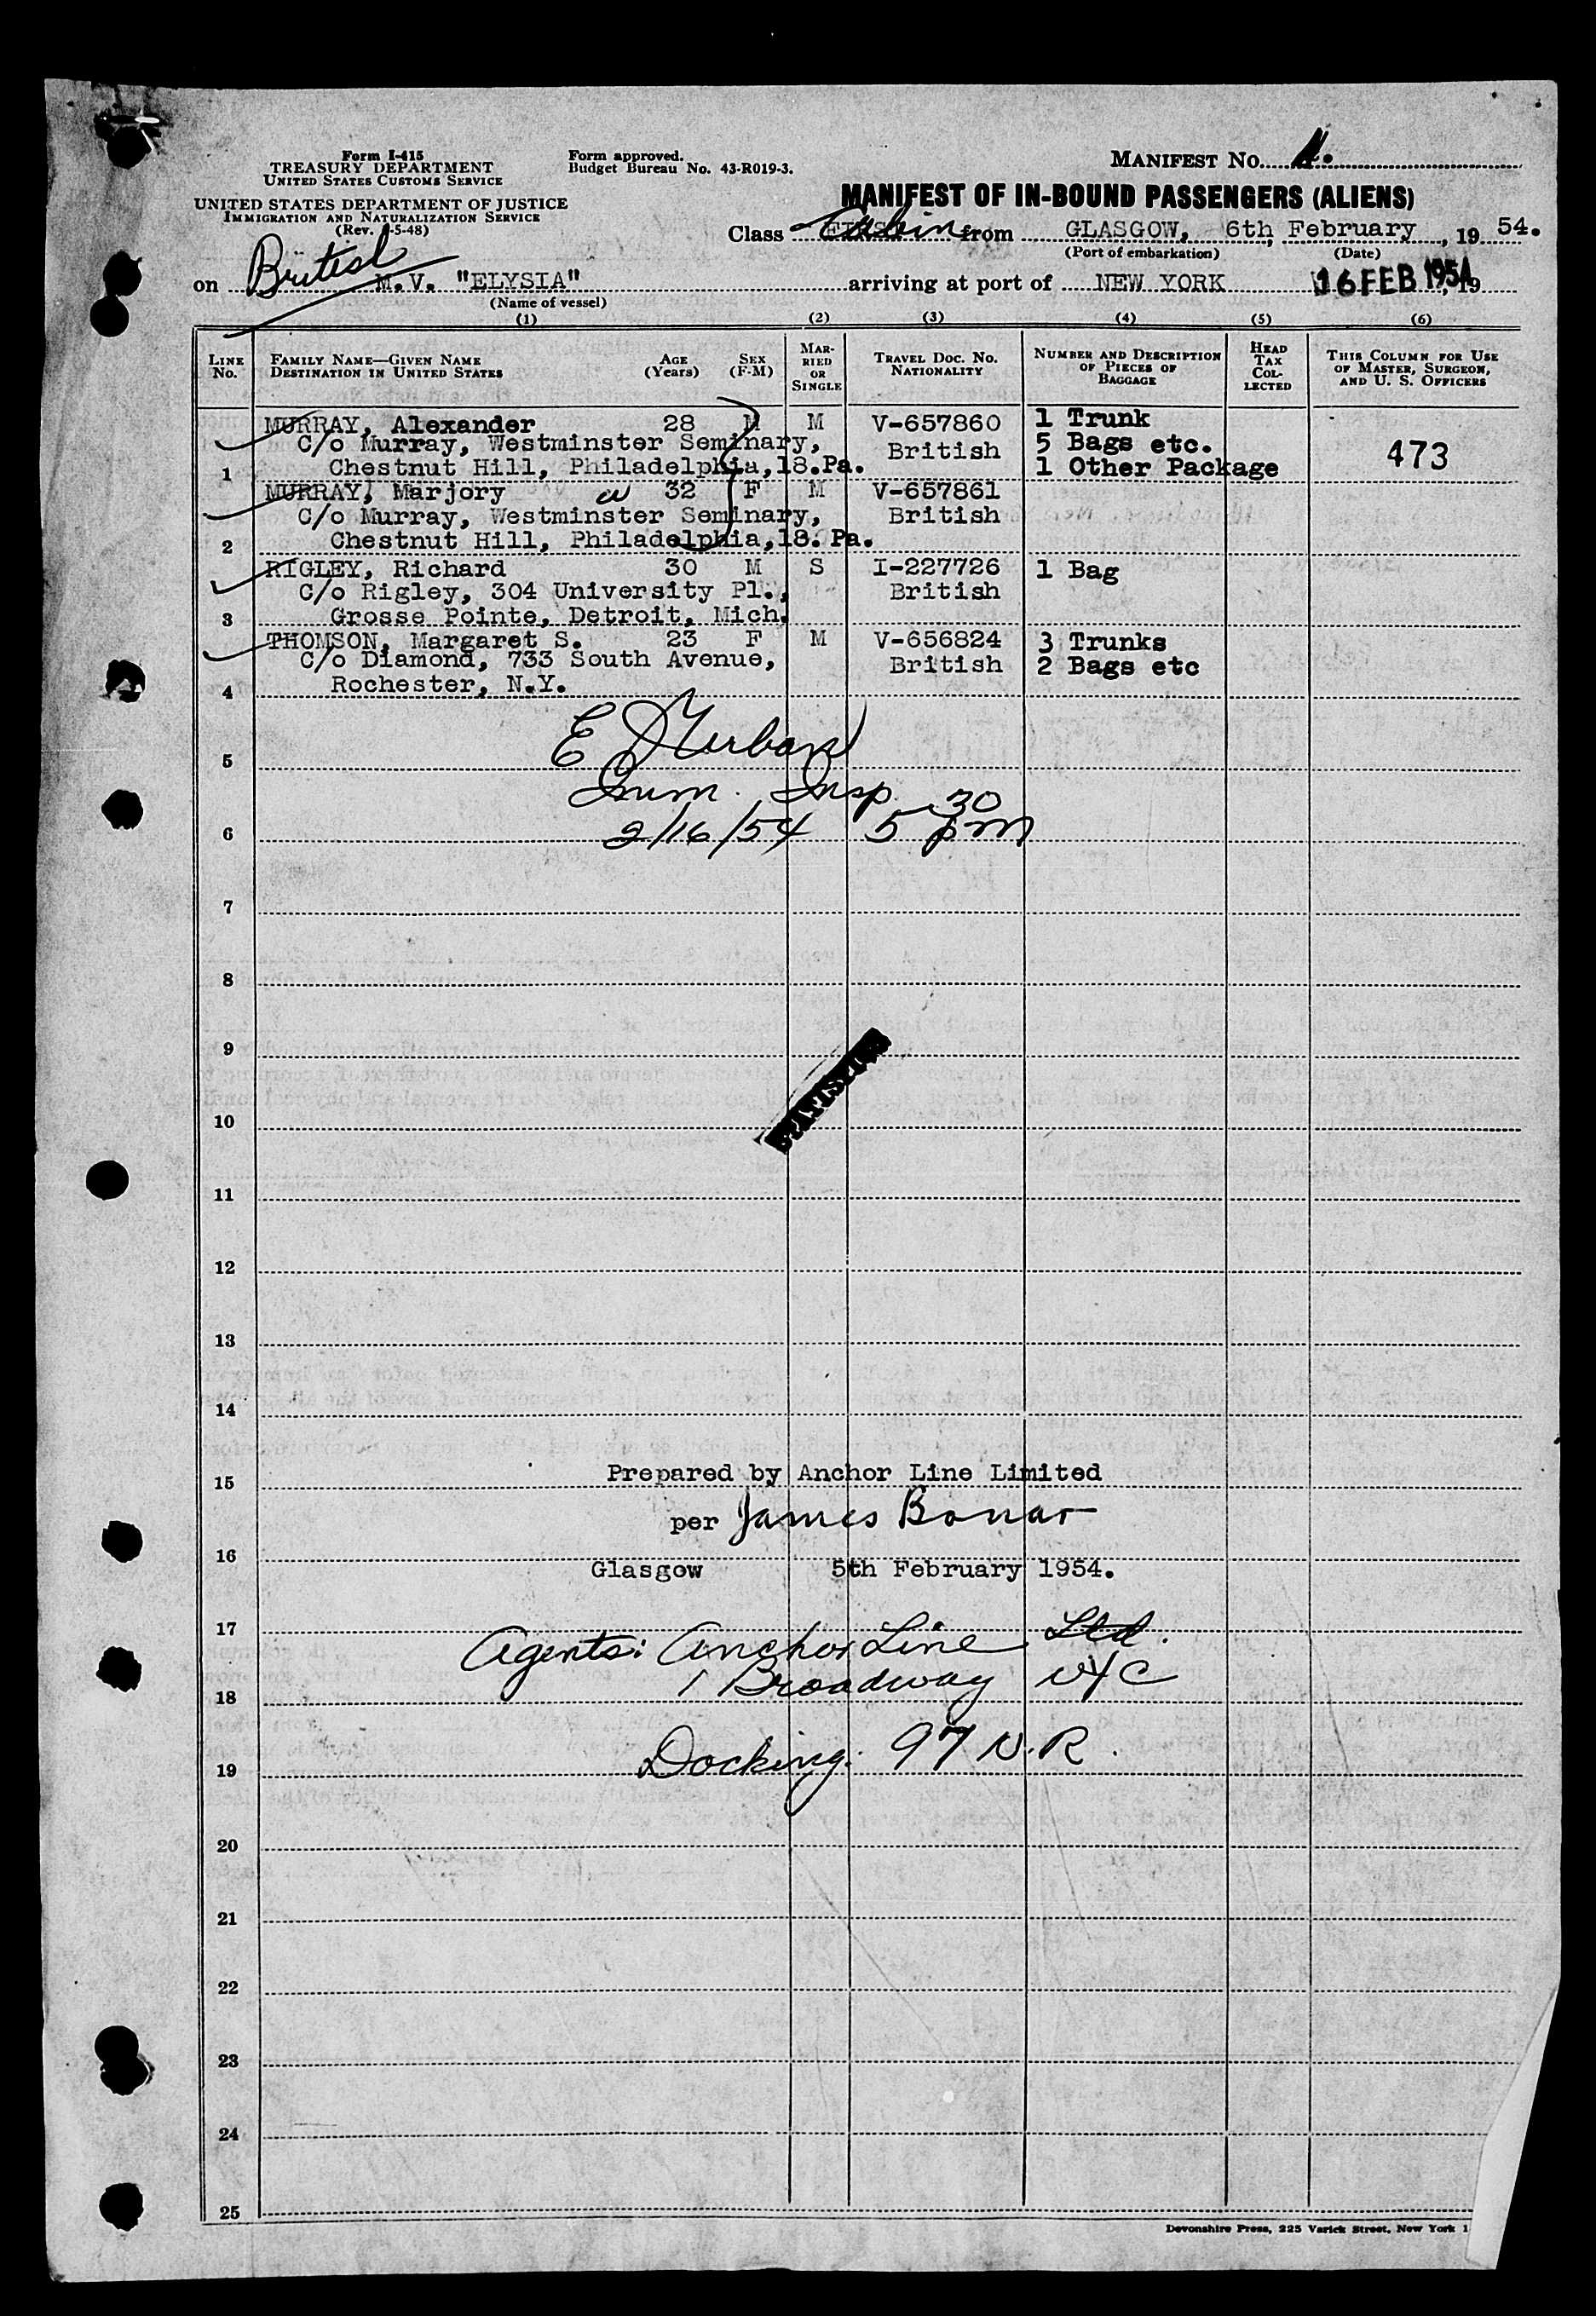 Form I-415
TREASURY DEPARTMENT
UNITED STATES CUSTOMS SERVICE
UNITED STATES DEPARTMENT OF JUSTICE
IMMIGRATION AND NATURALIZATION SERVICE
(Rev. -5-48)
Form approved.
Budget Bureau No. 43-R019-3.
MANIFEST No.
MANIFEST OF IN-BOUND PASSENGERS (ALIENS)
Class Cabin from GLASGOW, 6th, February, 19 54.
(Port of embarkation) (Date)
on British M.V. "ELYSIA" arriving at port of NEW YORK 16 FEB 1954, 19
(Name of vessel)
(1) (2) (3) (4) (5) (6)
LINE No. FAMILY NAME—GIVEN NAME DESTINATION IN UNITED STATES AGE (Years) SEX (F-M) MARRIED OR SINGLE TRAVEL DOC. NO. NATIONALITY NUMBER AND DESCRIPTION OF PIECES OF BAGGAGE HEAD TAX COLLECTED THIS COLUMN FOR USE OF MASTER, SURGEON, AND U. S. OFFICERS
MURRAY, Alexander 28 M M V-657860 1 Trunk
C/o Murray, Westminster Seminary, British 5 Bags etc. 473
1 Chestnut Hill, Philadelphia,18.Pa. 1 Other Package
MURRAY, Marjory 32 F M V-657861
C/o Murray, Westminster Seminary, British
2 Chestnut Hill, Philadelphia,18. Pa.
RIGLEY, Richard 30 M S I-227726 1 Bag
C/o Rigley, 304 University Pl., British
3 Grosse Pointe, Detroit, Mich.
THOMSON, Margaret S. 23 F M V-656824 3 Trunks
C/o Diamond, 733 South Avenue, British 2 Bags etc
4 Rochester, N.Y.
E
5
Imm. Insp.
6 2/16/54 5 30 pm
7
8
9
10
11
12
13
14
15 Prepared by Anchor Line Limited
per James Bonar
16
Glasgow 5th February 1954.
17
Agents: Anchor Line Ltd.
18 1 Broadway NYC
19 Docking: 97 N.R.
20
21
22
23
24
25
Devonshire Press, 225 Varick Street, New York 1